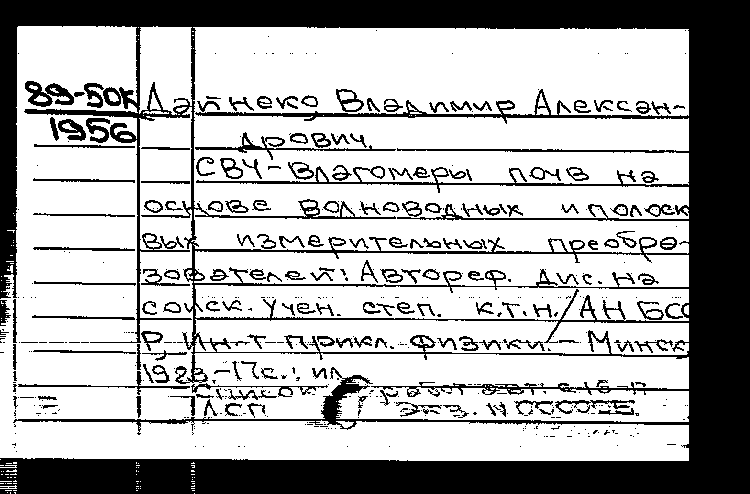 89-50к Дайнеко Владимир Алексан-
1956 дрович.
СВЧ-Влагомеры почв на
основе волноводных и полоск
вых измерительных преобра-
зователей: Автореф. дис. на
соиск. учен. степ. к.т.н. / АН БСС
Р, Ин-т прикл. физики. - Минск,
1983.-17с.: ил
Список работ авт: с.16-17
ДСП экз. N 000055.